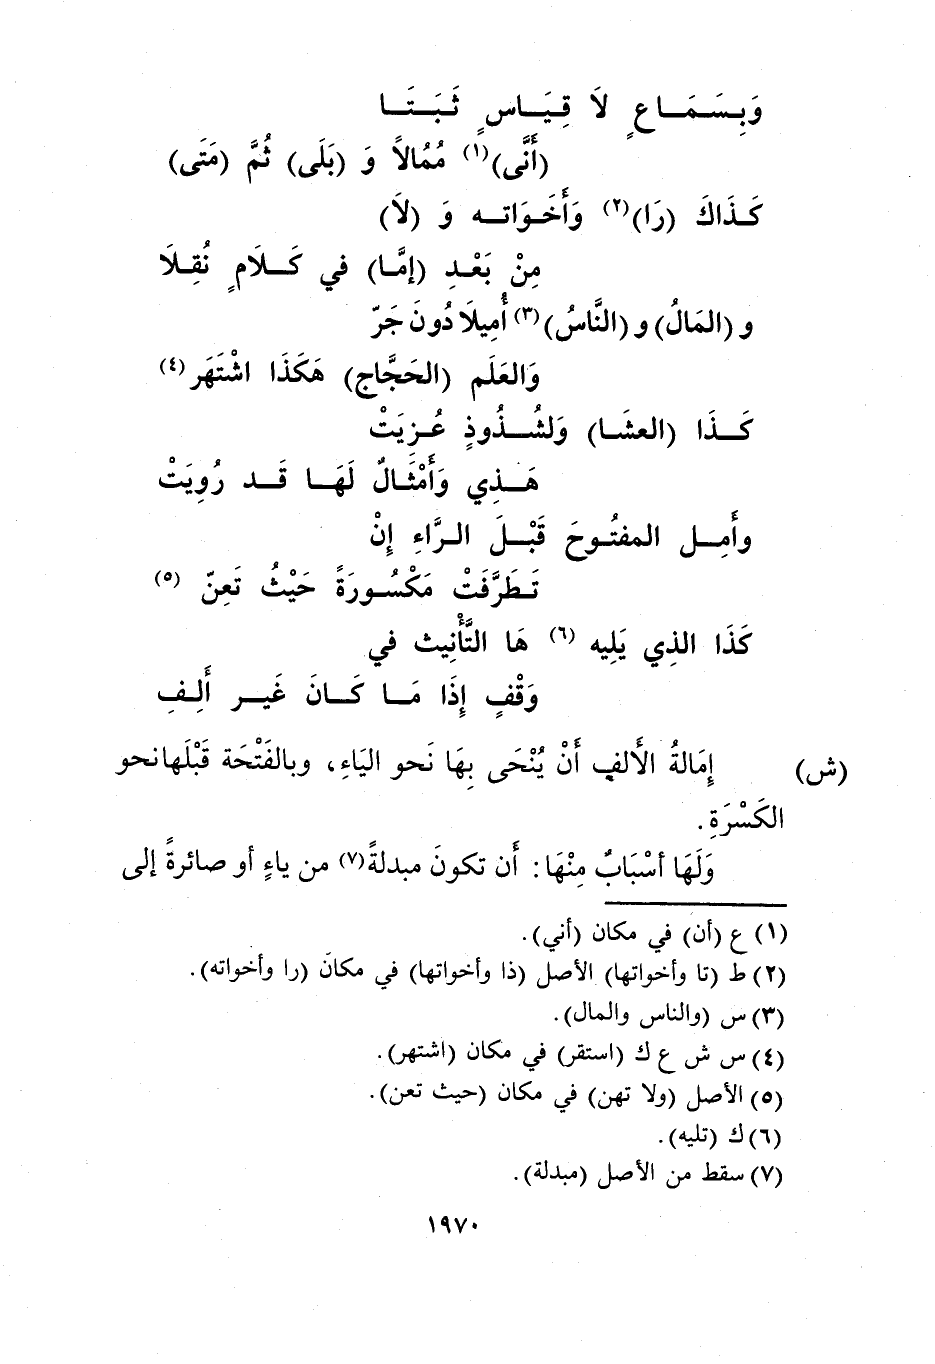 وَبِسَمَاعٍ لاَ قِيَاسٍ ثَبَتَا
(أَنَّى)(١) مُمُالاً وَ (بَلَى) ثُمَّ (مَتَى)
كَذَاكَ (رَا)(٢) وَأَخَوَاتـه وَ (لاَ)
مِنْ بَعْدِ (إمَّا) في كَلَامٍ نُقِلَا
و (المَالُ) و (النَّاسُ)(٣) أُمِيلَا دُونَ جَرّ
وَالعَلَم (الحَجَّاج) هَكَذَا اشْتَهَر(٤)
كَذَا (العشَا) وَلشُذُوذٍ عُزِيَتْ
هَذِي وَأَمْثَالٌ لَهَا قَد رُوِيَتْ
وأَمِل المفتُوحَ قَبْلَ الرَّاءِ إِنْ
تَطَرَّفَتْ مَكْسُورَةً حَيْثُ تَعِنّ (٥)
كَذَا الذِي يَلِيه (٦) هَا التَّأنِيث في
وَقْفٍ إِذَا مَا كَانَ غَيـر أَلِفِ
(ش) إِمَالةُ الأَلفِ أَنْ يُنْحَى بِهَا نَحو اليَاءِ، وبالفَتْحَة قَبْلَها نحو
الكَسْرَةِ.
وَلَهَا أسْبَابٌ مِنْهَا: أَن تكونَ مبدلةً(٧) من ياءٍ أو صائرةً إلى
(١) ع (أن) في مكان (أني).
(٢) ط (تا وأخواتها) الأصل (ذا وأخواتها) في مكان (را وأخواته).
(٣) س (والناس والمال).
(٤) س ش ع ك (استقر) في مكان (اشتهر).
(٥) الأصل (ولا تهن) في مكان (حيث تعن).
(٦) ك (تليه).
(٧) سقط من الأصل (مبدلة).
١٩٧٠